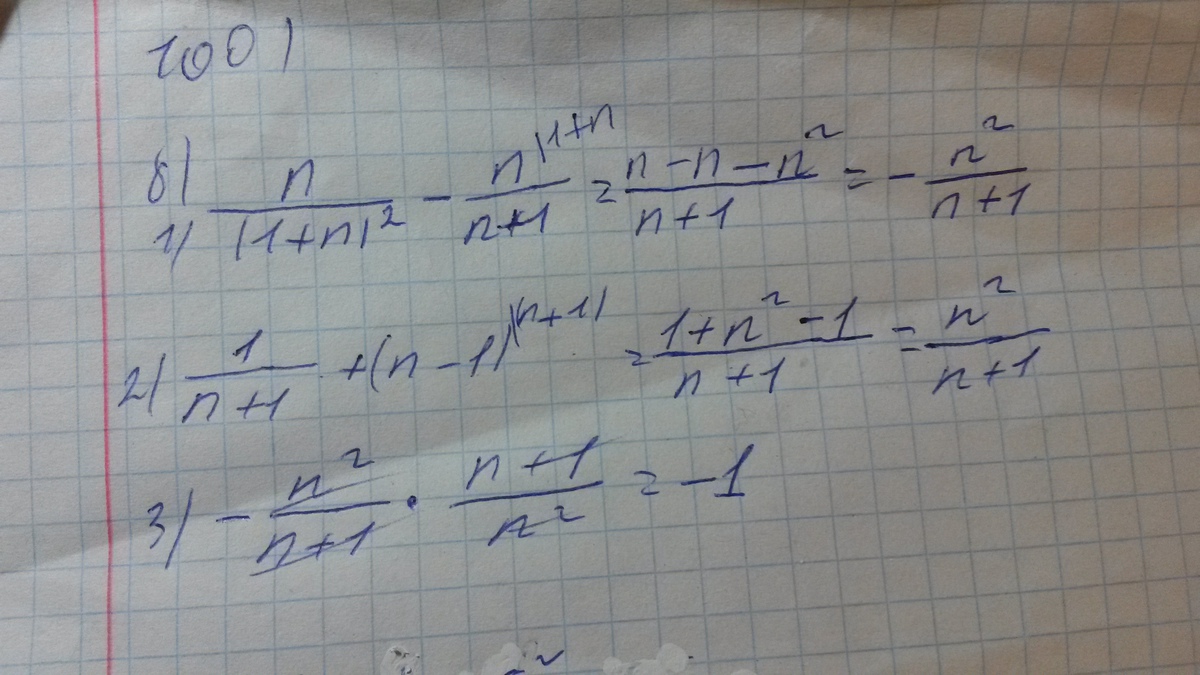 1001
б) 1) n/(1+n)² - n^(1+n/n+1 = n-n-n²/n+1 = - n²/n+1
2) 1/n+1 + (n-1)^(n+1) = 1+n²-1/n+1 = n²/n+1
3) - n²/n+1 · n+1/n² = -1